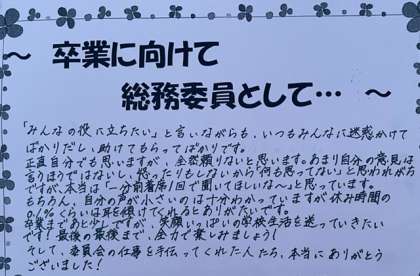 ～ 卒業に向けて
総務委員として… ～
「みんなの役に立ちたい」と言いながらも、いつもみんなに迷惑かけて
ばかりだし、助けてもらってばかりです。
正直自分でも思いますが、全然頼りないと思います。あまり自分の意見は
言うほうではないし、怒ったりもしないから「何も思ってない」と思われがち
ですが、本当は「一分前着席1回で聞いてほしいな～」と思っています。
もちろん、自分の声が小さいのは十分わかっていますが休み時間の
0.1%くらいは耳を傾けてくれるとありがたいです。
卒業まであと少しですが、笑顔いっぱいの学校生活を送っていきたい
です!最後の最後まで、全力で楽しみましょう!
そして、委員会の仕事を手伝ってくれた人たち、本当にありがとう
ございました!